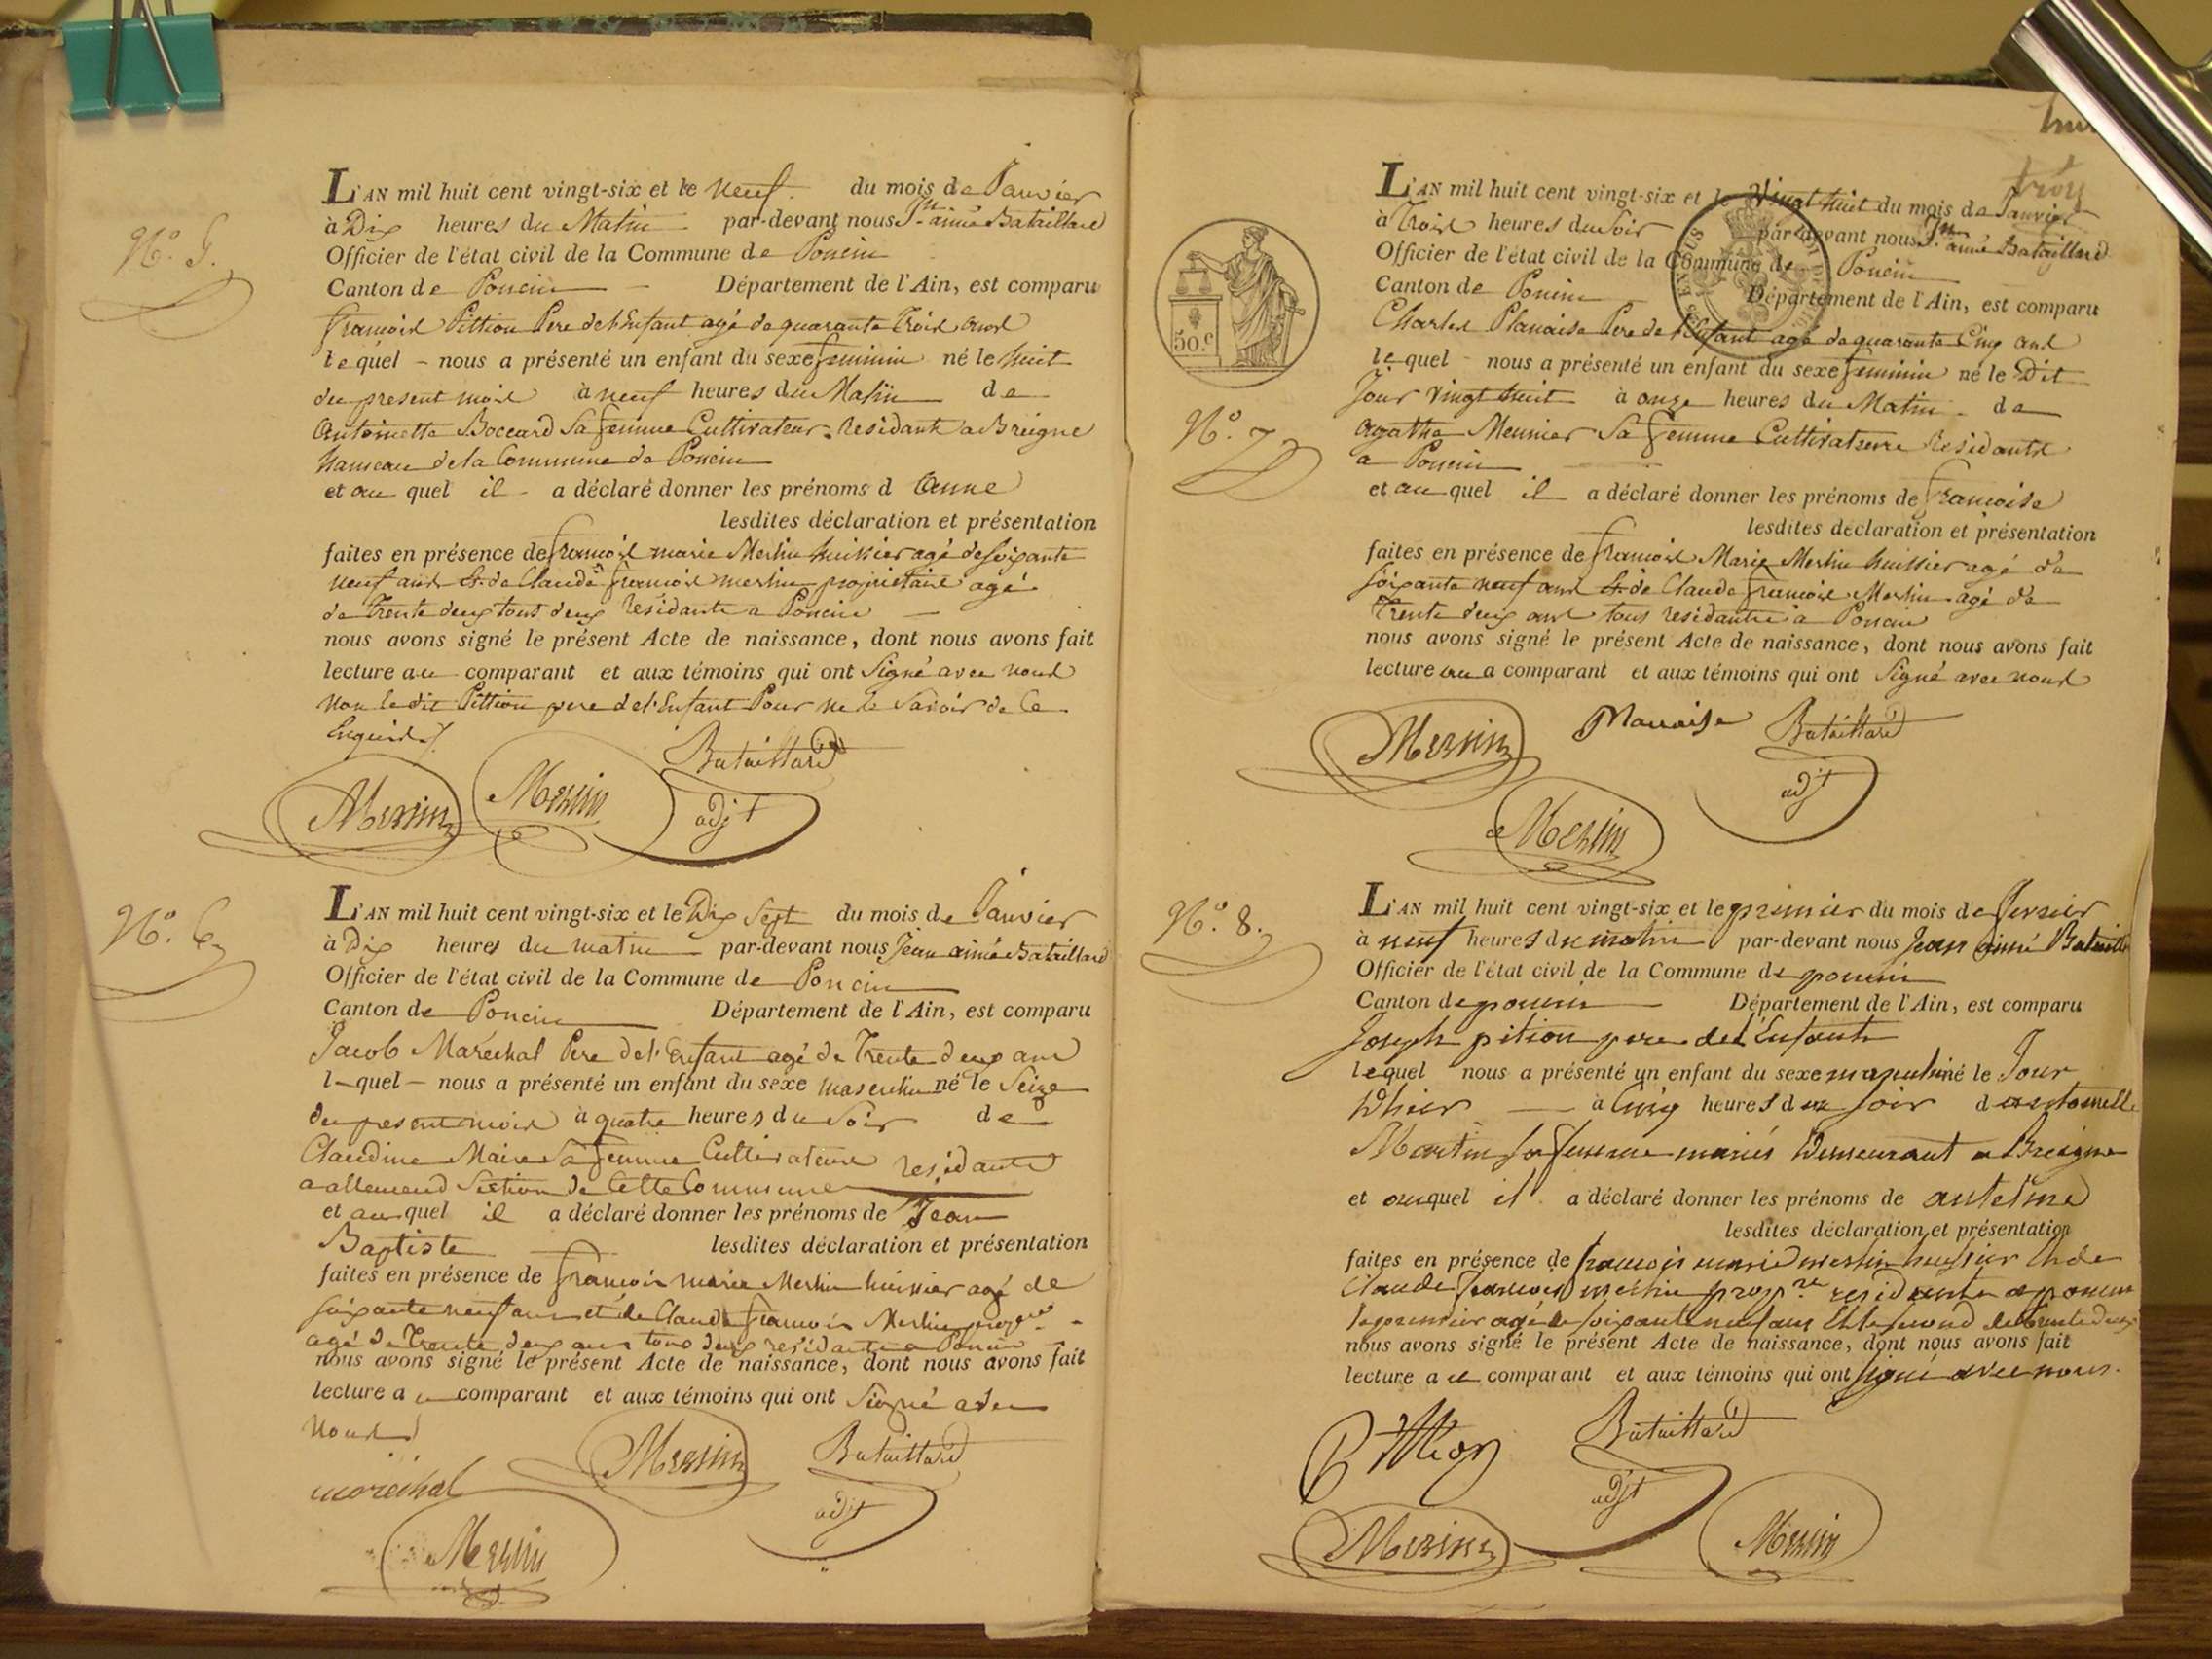 N.º 5.
L'AN mil huit cent vingt-six et le neuf du mois de Janvier
à Dix heures du Matin par-devant nous Jn aimé Bataillard
Officier de l'état civil de la Commune de Poncin
Canton de Poncin Département de l'Ain, est comparu
francois Pittion Pere de l'Enfant agé de quarante Trois ans
lequel nous a présenté un enfant du sexe feminin né le huit
du present mois à neuf heures du Matin de
Antoinette Boccard Sa femme Cultivateur residants a Breigne
hameau de la Commune de Poncin
et au quel il a déclaré donner les prénoms d Anne
lesdites déclaration et présentation
faites en présence de francois marie Merlin huissier agé de soixante
neuf ans & de Claude francois merlin proprietaire agé
de Trente deux tout deux residants a Poncin
nous avons signé le présent Acte de naissance, dont nous avons fait
lecture au comparant et aux témoins qui ont Signé avec nous
non le dit Pittion pere de l'Enfant Pour ne le Savoir de Ce
Enquis
Bataillard
Merlin Merlin adjt
N.º 6
L'AN mil huit cent vingt-six et le Dix Sept du mois de Janvier
à Dix heures du matin par-devant nous Jean aimé Bataillard
Officier de l'état civil de la Commune de Poncin
Canton de Poncin Département de l'Ain, est comparu
Jacob Maréchal Pere de l'Enfant agé de Trente deux ans
l quel nous a présenté un enfant du sexe masculin né le Seize
du present mois à quatre heures du Soir de
Claudine Maire Sa femme Cultivateurs residants
a allemend Section de Cette Commune
et au quel il a déclaré donner les prénoms de Jean
Baptiste lesdites déclaration et présentation
faites en présence de francois marie Merlin huissier agé de
soixante neuf ans et de Claude francois Merlin
agé de Trente deux ans tous deux residants a Poncin
nous avons signé le présent Acte de naissance, dont nous avons fait
lecture au comparant et aux témoins qui ont Signé avec
nous
Merlin Bataillard
maréchal adjt
Merlin
trois
50.c
N.º 7
L'AN mil huit cent vingt-six et le Vingt huit du mois de Janvier
à Trois heures du Soir par-devant nous Jn aimé Bataillard
Officier de l'état civil de la Commune de Poncin
Canton de Poncin Département de l'Ain, est comparu
Charles Planaise Pere de l'Enfant agé de quarante Cinq ans
le quel nous a présenté un enfant du sexe feminin né le Dit
Jour vingt huit à onze heures du Matin de
Agathe Meunier Sa femme Cultivateurs Residants
a Poncin
et au quel il a déclaré donner les prénoms de francoise
lesdites déclaration et présentation
faites en présence de francois Marie Merlin huissier agé de
soixante neuf ans & de Claude francois Merlin agé de
Trente deux ans tous residants à Poncin
nous avons signé le présent Acte de naissance, dont nous avons fait
lecture au comparant et aux témoins qui ont Signé avec nous
Merlin Planaise Bataillard
adjt
Merlin
N.º 8.
L'AN mil huit cent vingt-six et le premier du mois de fevrier
à neuf heures du matin par-devant nous Jean aimé Bataillard
Officier de l'état civil de la Commune de poncin
Canton de poncin Département de l'Ain, est comparu
Joseph pition pere de l'Enfant
lequel nous a présenté un enfant du sexe masculin né le Jour
D'hier à Cinq heures du soir d antoinette
Martin sa femme mariés Demeurant a Breigne
et auquel il a déclaré donner les prénoms de antelme
lesdites déclaration et présentation
faites en présence de francois marie merlin huissier & de
Claude francois merlin prop.re residants a poncin
le premier agé de soixante neuf ans & le second de trente deux
nous avons signé le présent Acte de naissance, dont nous avons fait
lecture au comparant et aux témoins qui ont signé avec nous.
Pittion Bataillard
adjt
Merlin Merlin